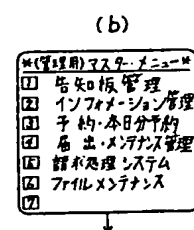 (b)
*(管理用)マスター・メニュー*
1 告知板管理
2 インフォメーション管理
3 予約・本日分予約
4 届出・メンテナンス管理
5 請求処理システム
6 ファイルメンテナンス
7